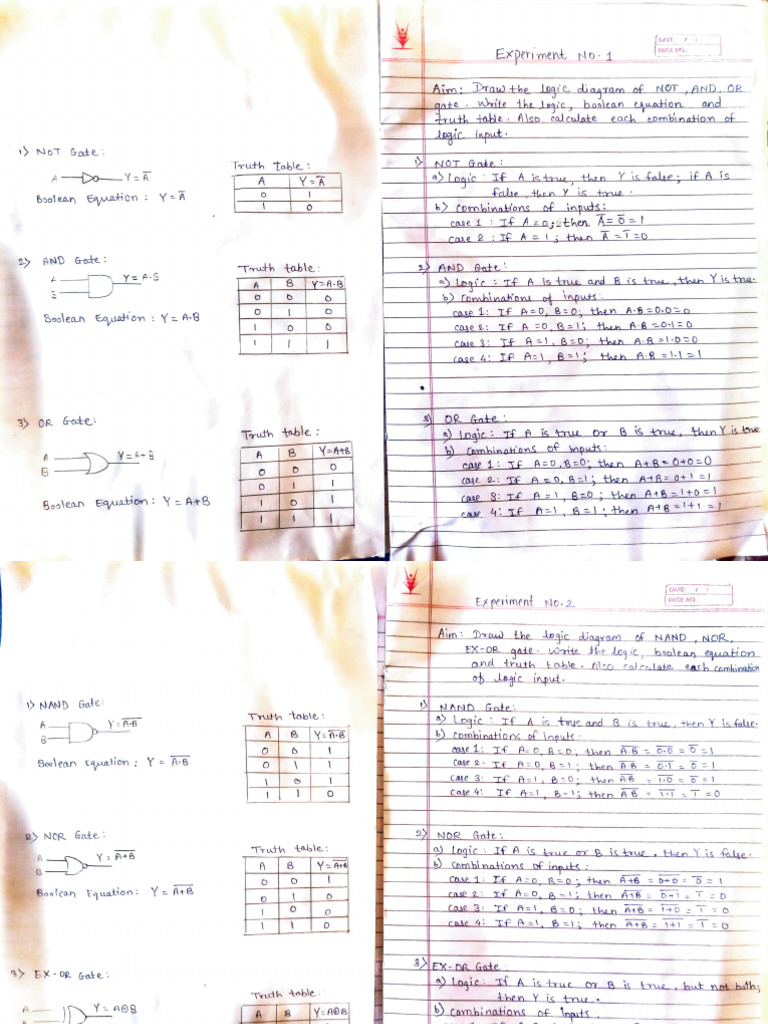 1) NOT Gate:
A
Y = A̅
Boolean Equation : Y = A̅
Truth Table :
A Y = A̅
0 1
1 0
2) AND Gate:
A
B
Y = A·B
Boolean Equation : Y = A·B
Truth table:
A B Y=A·B
0 0 0
0 1 0
1 0 0
1 1 1
3) OR Gate:
A
B
Y = A+B
Boolean Equation: Y = A+B
Truth table:
A B Y=A+B
0 0 0
0 1 1
1 0 1
1 1 1
DATE / /
PAGE NO.
Experiment No. 1
Aim: Draw the logic diagram of NOT, AND, OR
gate. Write the logic, boolean equation and
truth table. Also calculate each combination of
logic input.
1) NOT Gate:
a) Logic : If A is true, then Y is false; if A is
false, then Y is true.
b) Combinations of inputs:
case 1 : If A=0; then A̅ = 0̅ = 1
case 2 : If A = 1 ; then A̅ = 1̅ = 0
2) AND Gate:
a) Logic : If A is true and B is true, then Y is true.
b) Combinations of inputs:
case 1: If A=0, B=0; then A·B=0·0=0
case 2: If A=0, B=1; then A·B=0·1=0
case 3: If A=1, B=0; then A·B=1·0=0
case 4: If A=1, B=1; then A·B=1·1=1
3) OR Gate:
a) Logic: If A is true or B is true, then Y is true
b) combinations of inputs:
case 1: If A=0, B=0; then A+B=0+0=0
case 2: If A=0, B=1; then A+B=0+1=1
case 3: If A=1, B=0; then A+B=1+0=1
case 4: If A=1, B=1; then A+B=1+1=1
1) NAND Gate:
A
B
Y = A̅·̅B̅
Boolean Equation : Y = A̅·̅B̅
Truth table:
A B Y=A̅·̅B̅
0 0 1
0 1 1
1 0 1
1 1 0
2) NOR Gate:
A
B
Y = A̅+̅B̅
Boolean Equation: Y = A̅+̅B̅
Truth table:
A B Y=A̅+̅B̅
0 0 1
0 1 0
1 0 0
1 1 0
3) EX-OR Gate:
A
Y = A⊕B
Truth table:
A B Y=A⊕B
DATE: / /
PAGE NO.
Experiment No. 2
Aim: Draw the logic diagram of NAND, NOR,
EX-OR gate. Write the logic, boolean equation
and truth table. Also calculate each combination
of logic input.
1) NAND Gate:
a) Logic : If A is true and B is true, then Y is false.
b) combinations of inputs:
case 1: If A=0, B=0; then A̅·̅B̅ = 0̅·̅0̅ = 0̅ = 1
case 2: If A=0, B=1; then A̅·̅B̅ = 0̅·̅1̅ = 0̅ = 1
case 3: If A=1, B=0; then A̅B̅ = 1̅·̅0̅ = 0̅ = 1
case 4: If A=1, B=1; then A̅B̅ = 1̅·̅1̅ = 1̅ = 0
2) NOR Gate:
a) Logic: If A is true or B is true, then Y is false.
b) combinations of inputs:
case 1: If A=0, B=0; then A̅+̅B̅ = 0̅+̅0̅ = 0̅ = 1
case 2: If A=0, B=1; then A̅+̅B̅ = 0̅+̅1̅ = 1̅ = 0
case 3: If A=1, B=0; then A̅+̅B̅ = 1̅+̅0̅ = 1̅ = 0
case 4: If A=1, B=1; then A̅+̅B̅ = 1̅+̅1̅ = 1̅ = 0
3) EX-OR Gate:
a) Logic: If A is true or B is true, but not both;
then Y is true.
b) combinations of inputs: